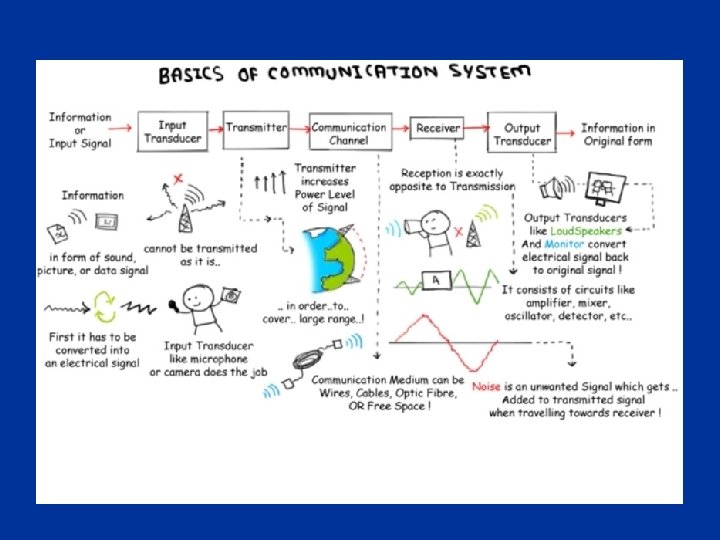 BASICS OF COMMUNICATION SYSTEM
Information
or
Input Signal
Input
Transducer
Transmitter
Communication
Channel
Receiver
Output
Transducer
Information in
Original form
Information
in form of sound,
picture, or data signal
First it has to be
converted into
an electrical signal
X
cannot be transmitted
as it is..
Input Transducer
like microphone
or camera does the job
Transmitter
increases
Power Level
of Signal
.. in order..to..
cover.. large range..!
Communication Medium can be
Wires, Cables, Optic Fibre,
OR Free Space !
Reception is exactly
opposite to Transmission
X
A
It consists of circuits like
amplifier, mixer,
oscillator, detector, etc..
Output Transducers
like LoudSpeakers
And Monitor convert
electrical signal back
to original signal !
Noise is an unwanted Signal which gets ..
Added to transmitted signal
when travelling towards receiver !